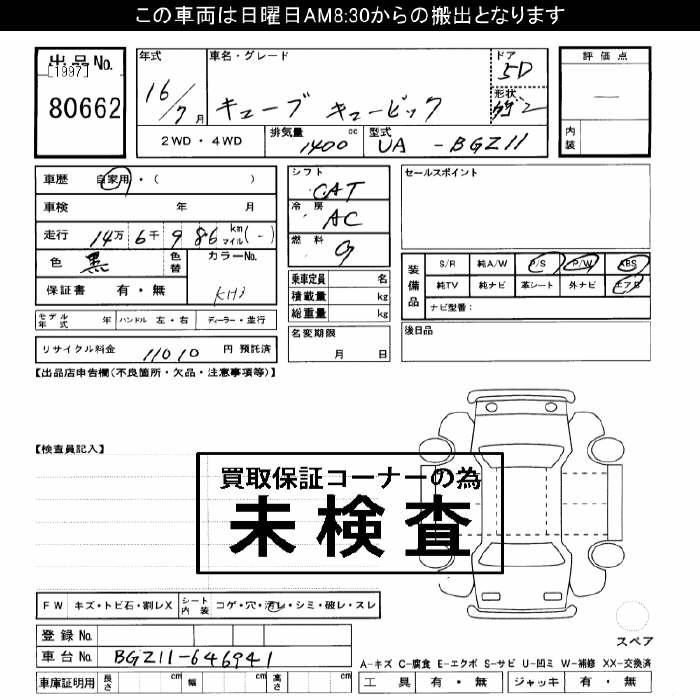 この車両は日曜日AM8:30からの搬出となります
出品No.
[1997]
80662
年式
16/7月
車名・グレード
キューブ キュービック
ドア
5D
形状
評価点
—
内装
2WD・4WD
排気量
1400 cc
型式
UA - BGZ11
車歴 自家用・( )
車検 年 月
走行 14万 6千 9 86 km マイル (-)
色 黒
色替
カラーNo.
KH3
保証書 有・無
シフト
CAT
冷房
AC
燃料
G
乗車定員 名
積載量 kg
総重量 kg
名変期限
月 日
セールスポイント
装備品
S/R 純A/W P/S P/W ABS
純TV 純ナビ 革シート 外ナビ エアB
ナビ型番:
後日品
モデル年式 年 ハンドル 左・右 ディーラー・並行
リサイクル料金 11010 円 預託済
【出品店申告欄(不良箇所・欠品・注意事項等)】
【検査員記入】
買取保証コーナーの為
未検査
FW キズ・トビ石・割レX シート内装 コゲ・穴・汚レ・シミ・破レ・スレ
登録No.
車台No. BGZ11-646941
車庫証明用 長さ cm 幅 cm 高さ cm
スペア
A-キズ C-腐食 E-エクボ S-サビ U-凹ミ W-補修 XX-交換済
工具 有・無 ジャッキ 有・無